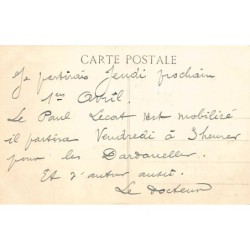 CARTE POSTALE
Je partirais Jeudi prochain
1er Avril.
Le Paul Lecat est mobilisé
il partira Vendredi à 3 heures
pour les Dardanelles.
Et d'autres aussi.
Le Docteur